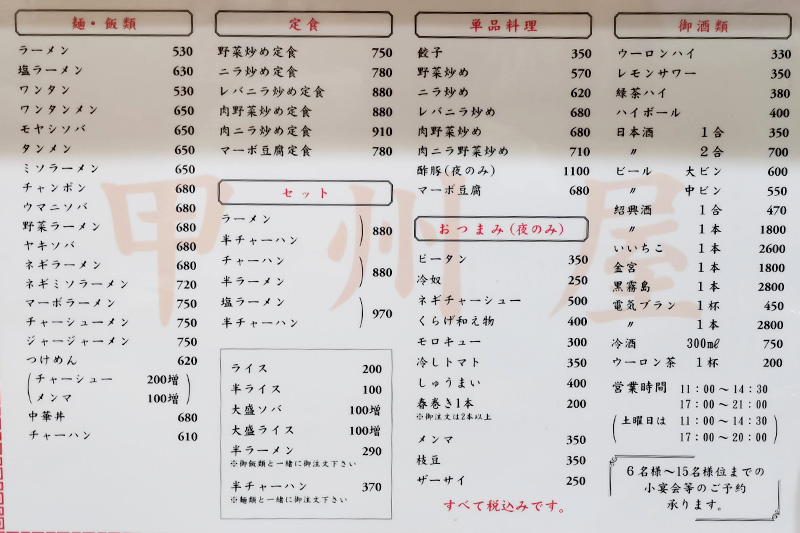 麺・飯類
ラーメン 530
塩ラーメン 630
ワンタン 530
ワンタンメン 650
モヤシソバ 650
タンメン 650
ミソラーメン 650
チャンポン 680
ウマニソバ 680
野菜ラーメン 680
ヤキソバ 680
ネギラーメン 680
ネギミソラーメン 720
マーボラーメン 750
チャーシューメン 750
ジャージャーメン 750
つけめん 620
(チャーシュー 200増)
(メンマ 100増)
中華丼 680
チャーハン 610
定食
野菜炒め定食 750
ニラ炒め定食 780
レバニラ炒め定食 880
肉野菜炒め定食 880
肉ニラ炒め定食 910
マーボ豆腐定食 780
セット
ラーメン
半チャーハン ) 880
チャーハン
半ラーメン ) 880
塩ラーメン
半チャーハン ) 970
ライス 200
半ライス 100
大盛ソバ 100増
大盛ライス 100増
半ラーメン 290
※御飯類と一緒に御注文下さい
半チャーハン 370
※麺類と一緒に御注文下さい
単品料理
餃子 350
野菜炒め 570
ニラ炒め 620
レバニラ炒め 680
肉野菜炒め 680
肉ニラ野菜炒め 710
酢豚(夜のみ) 1100
マーボ豆腐 680
おつまみ(夜のみ)
ピータン 350
冷奴 250
ネギチャーシュー 500
くらげ和え物 400
モロキュー 300
冷しトマト 350
しゅうまい 400
春巻き1本 200
※御注文は2本以上
メンマ 350
枝豆 350
ザーサイ 250
すべて税込みです。
御酒類
ウーロンハイ 330
レモンサワー 350
緑茶ハイ 380
ハイボール 400
日本酒 1合 350
〃 2合 700
ビール 大ビン 600
〃 中ビン 550
紹興酒 1合 470
〃 1本 1800
いいちこ 1本 2600
金宮 1本 1800
黒霧島 1本 2800
電気ブラン 1杯 450
〃 1本 2800
冷酒 300㎖ 750
ウーロン茶 1杯 200
営業時間 11:00～14:30
17:00～21:00
(土曜日は 11:00～14:30
17:00～20:00)
6名様～15名様位までの
小宴会等のご予約
承ります。
甲州屋